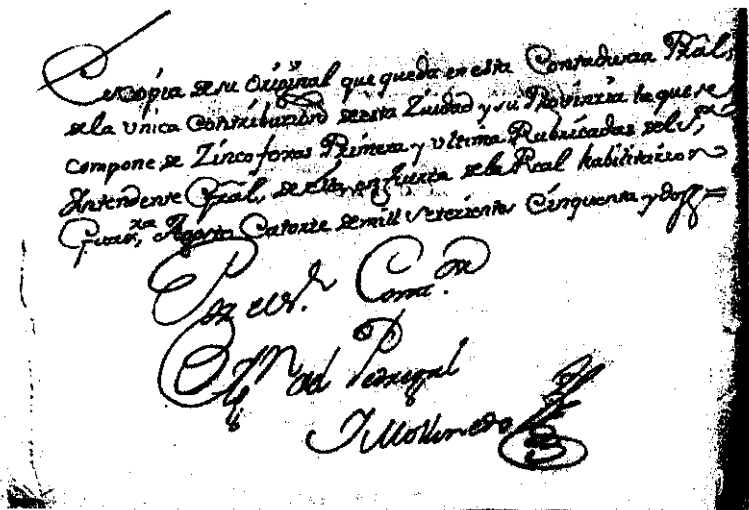 Es copia de su Original que queda en esta Contaduria Pral,
de la Unica Contribución de esta Ziudad y su Provinzia la que se
compone de Zinco foxas Primera y ultima Rubricadas del Sr,
Intendente Gral, de ella, en fuerza de la Real habilitazion
Agosto Catorze de mill setezientos Cinquenta y dos =
Por el Sr. Conta.or
del Pedregal
Mollinedo